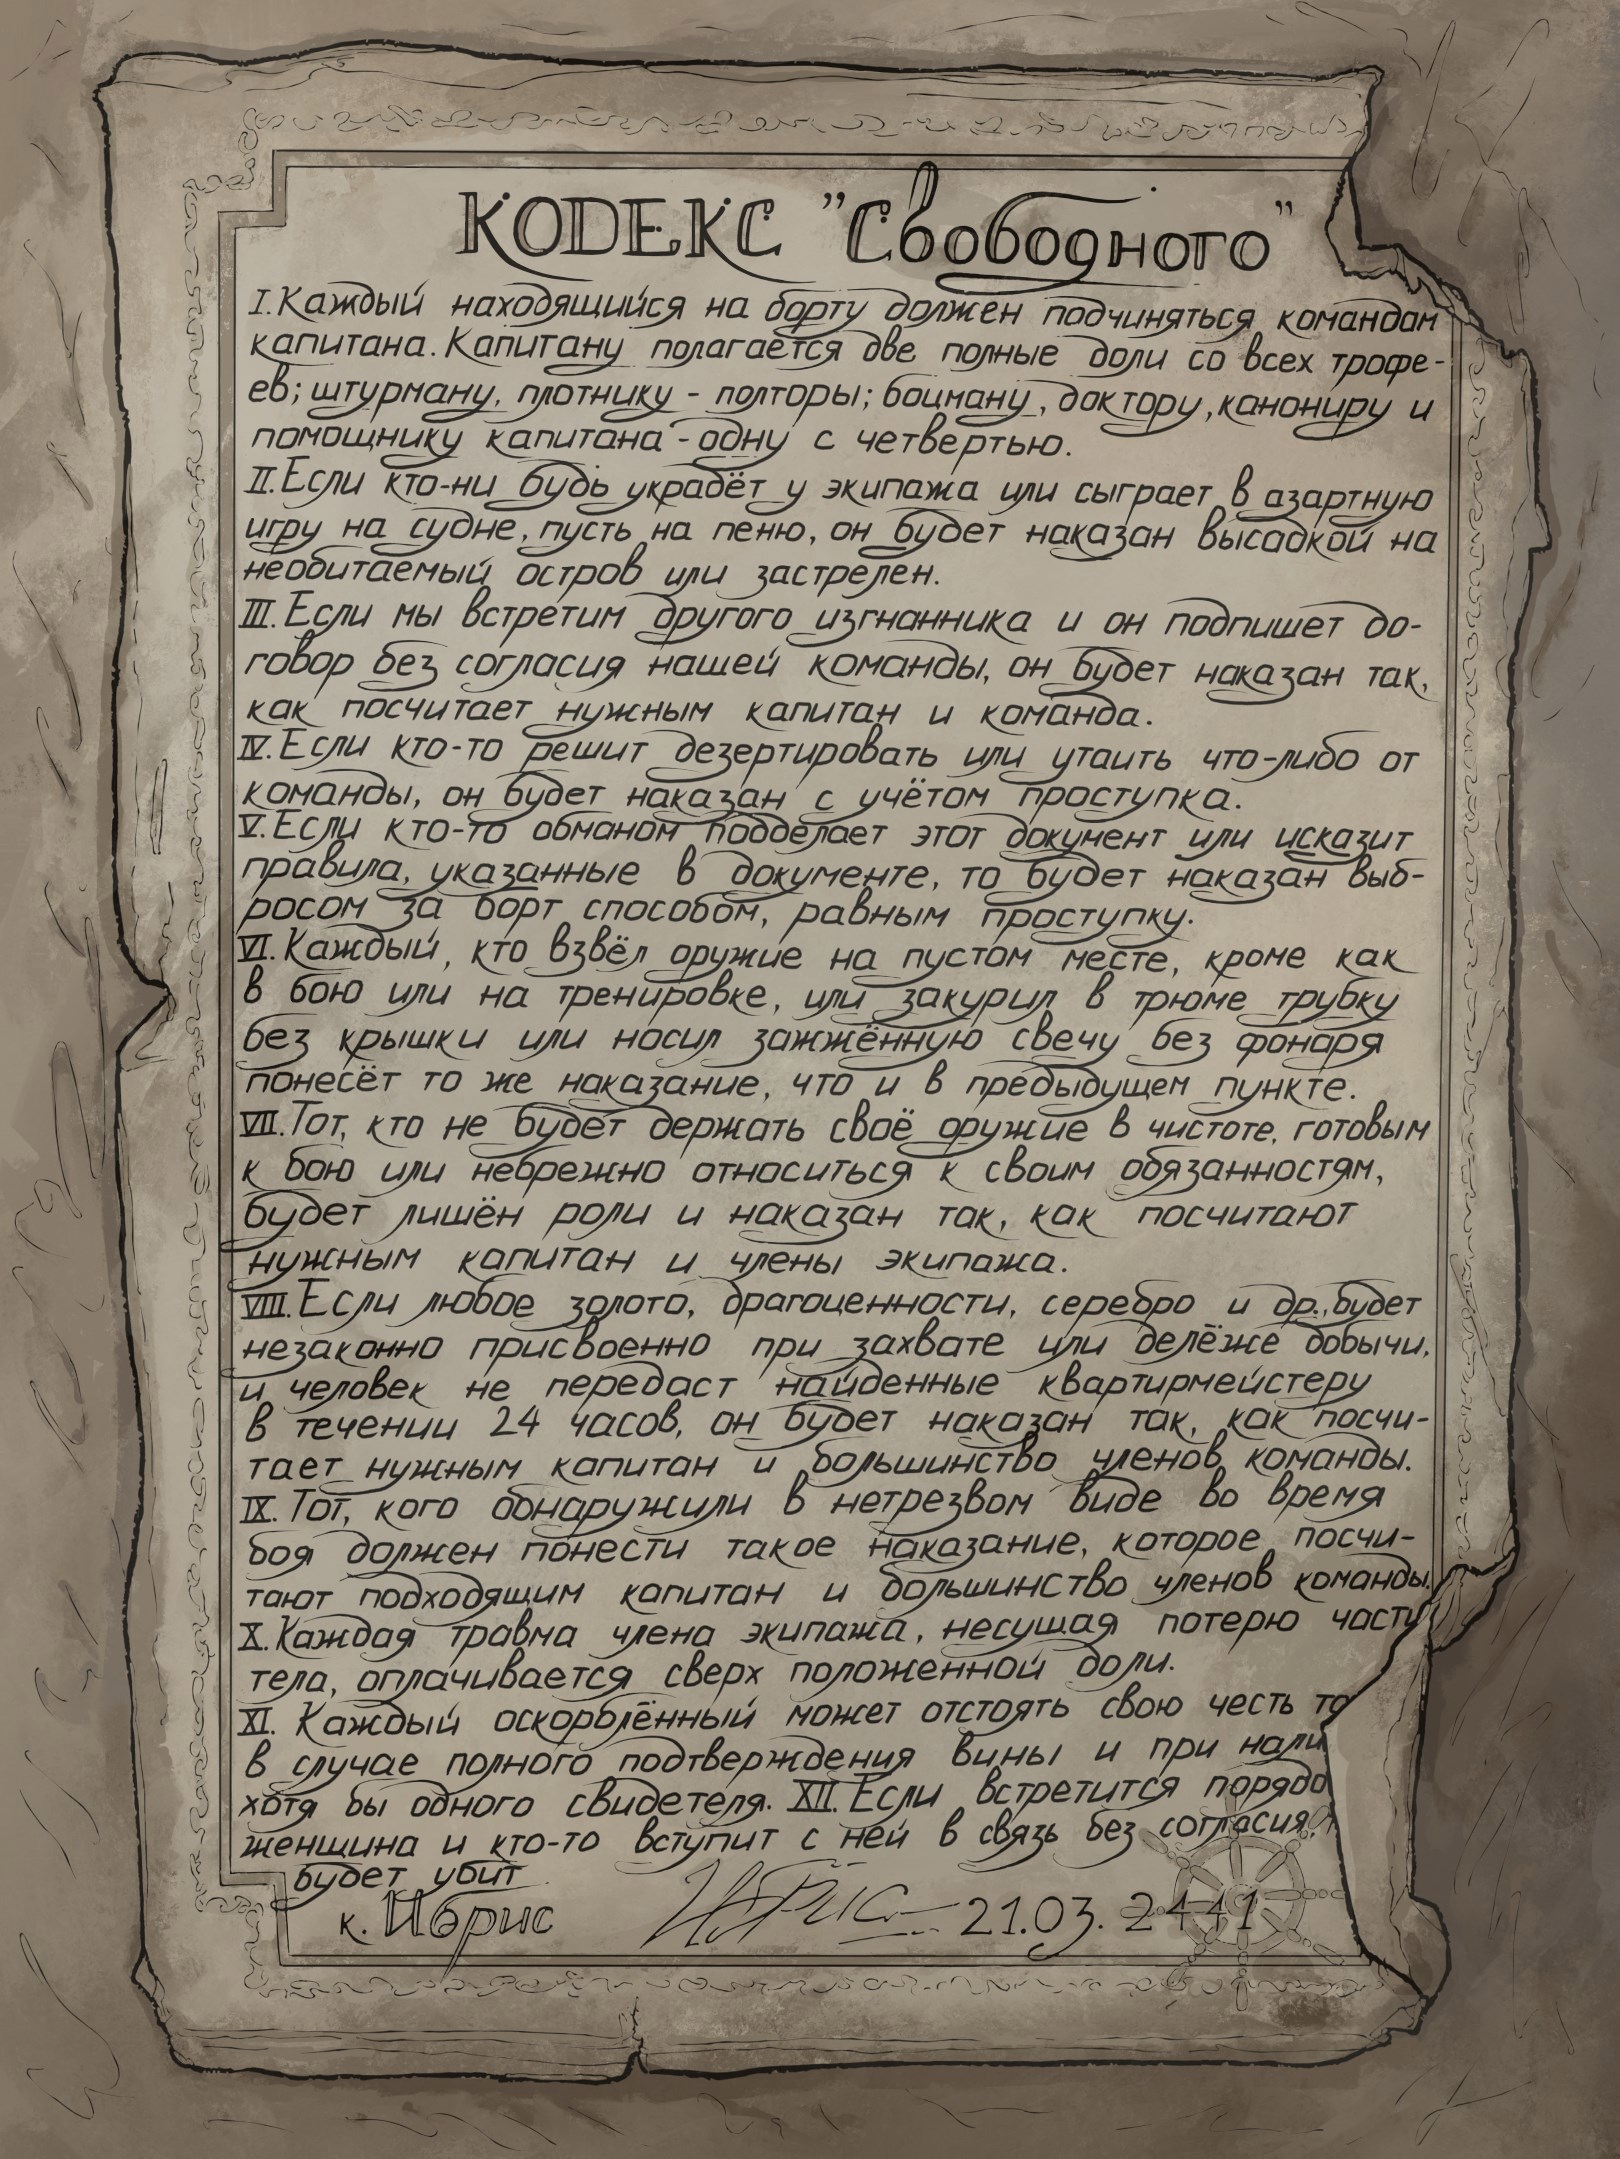 КОДЕКС "Свободного"
I. Каждый находящийся на борту должен подчиняться командам
капитана. Капитану полагается две полные доли со всех трофе-
ев; штурману, плотнику - полторы; боцману, доктору, канониру и
помощнику капитана - одну с четвертью.
II. Если кто-ни будь украдёт у экипажа или сыграет в азартную
игру на судне, пусть на пеню, он будет наказан высадкой на
необитаемый остров или застрелен.
III. Если мы встретим другого изгнанника и он подпишет до-
говор без согласия нашей команды, он будет наказан так,
как посчитает нужным капитан и команда.
IV. Если кто-то решит дезертировать или утаить что-либо от
команды, он будет наказан с учётом проступка.
V. Если кто-то обманом подделает этот документ или исказит
правила, указанные в документе, то будет наказан выб-
росом за борт способом, равным проступку.
VI. Каждый, кто взвёл оружие на пустом месте, кроме как
в бою или на тренировке, или закурил в трюме трубку
без крышки или носил зажжённую свечу без фонаря
понесёт то же наказание, что и в предыдущем пункте.
VII. Тот, кто не будет держать своё оружие в чистоте, готовым
к бою или небрежно относиться к своим обязанностям,
будет лишён роли и наказан так, как посчитают
нужным капитан и члены экипажа.
VIII. Если любое золото, драгоценности, серебро и др., будет
незаконно присвоенно при захвате или делёже добычи,
и человек не передаст найденные квартирмейстеру
в течении 24 часов, он будет наказан так, как посчи-
тает нужным капитан и большинство членов команды.
IX. Тот, кого обнаружили в нетрезвом виде во время
боя должен понести такое наказание, которое посчи-
тают подходящим капитан и большинство членов команды.
X. Каждая травма члена экипажа, несущая потерю части
тела, оплачивается сверх положенной доли.
XI. Каждый оскорблённый может отстоять свою честь
в случае полного подтверждения вины и при нали
хотя бы одного свидетеля. XII. Если встретится порядо
женщина и кто-то вступит с ней в связь без согласия,
будет убит.
к. Ибрис Ибрис 21.03. 2441